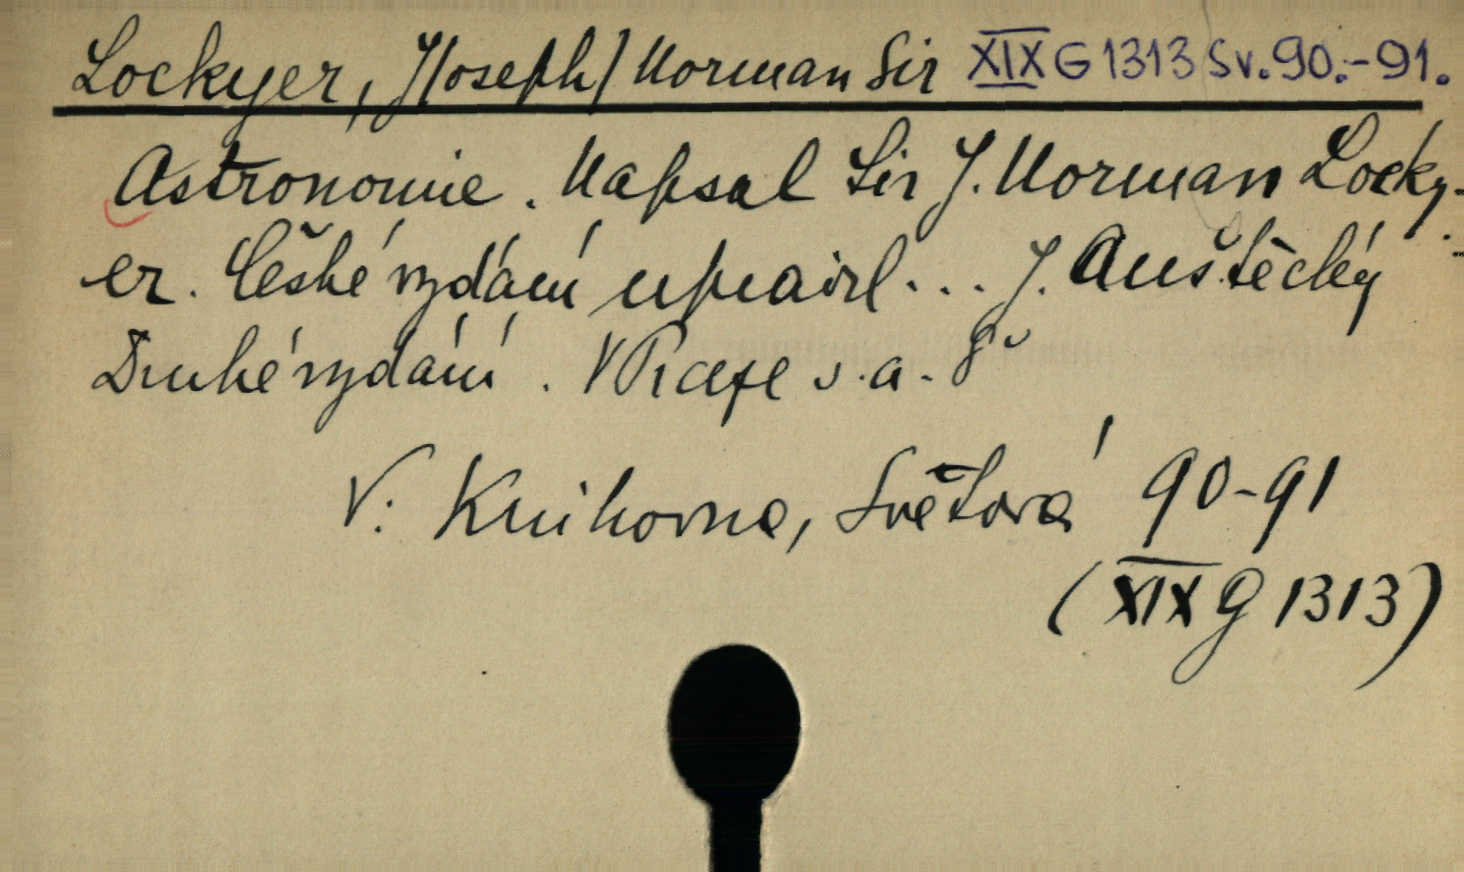 Lockyer, J(oseph) Norman Sir XIX G 1313 Sv. 90.-91.
Astronomie. Napsal Sir J. Norman Locky-
er. České vydání upravil... J. Auštěcký
Druhé vydání. V Praze s.a. 8°
V: Knihovna, Světová 90-91
(XIX G 1313)